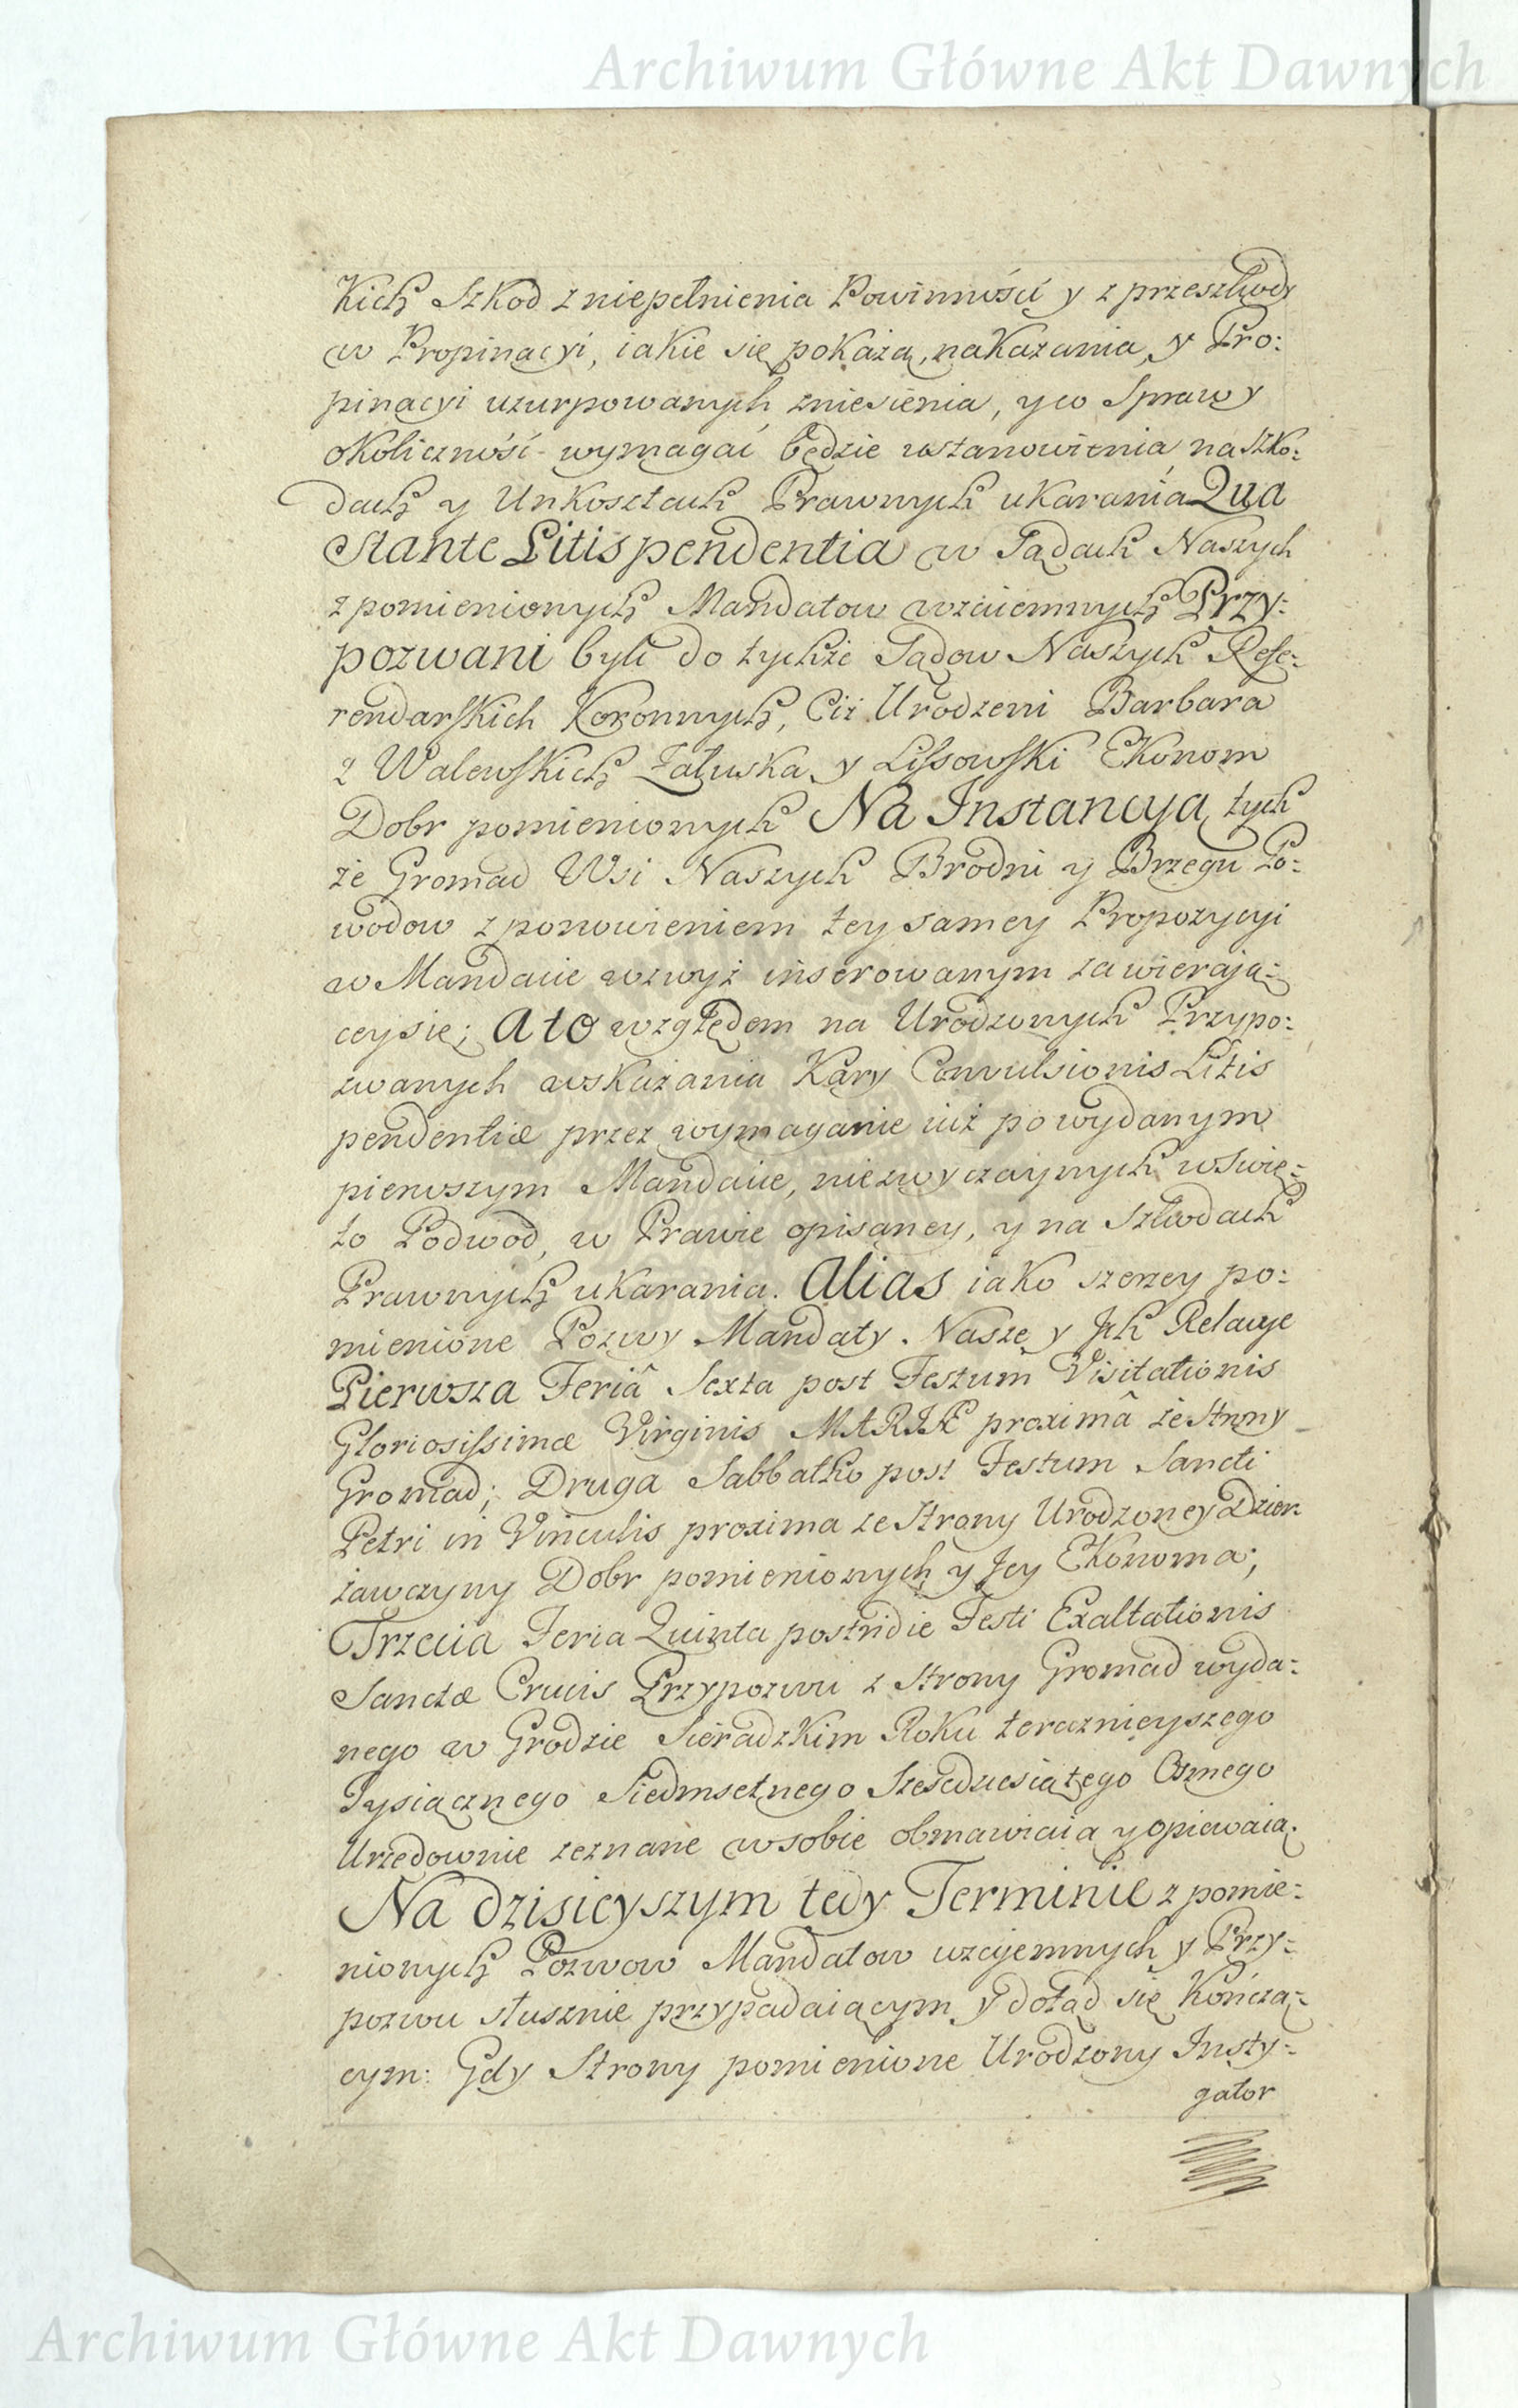 Archiwum Główne Akt Dawnych
Kich Szkod z niepełnienia Powinności y z przeszkody
w Propinacyi, iakie się pokażą, nakazania, y Pro:
pinacyi uzurpowanych zniesienia, y co Sprawy
okoliczność wymagać będzie ustanowienia na Szko:
dach y Unkosztach Prawnych ukarania Qua
Stante Litispendentia w Sądach Naszych
z pomienionych Mandatow wzaiemnych Przy:
pozwani byli do tychże Sądow Naszych Refe:
rendarskich Koronnych, Ciż Urodzeni Barbara
z Walewskich Załuska y Lissowski Ekonom
Dobr pomienionych Na Instancyą tych
że Gromad Wsi Naszych Brodni y Brzegu Po:
wodow z ponowieniem tey samey Propozycyi
w Mandacie wzwyż inserowanym zawieraią:
cey się; a to względem na Urodzonych Przypo:
zwanych wskazania Kary Convulsionis Litis
pendentiæ przez wymaganie iuż po wydanym
pierwszym Mandacie, niezwyczaynych w Swię:
to Podwod, w Prawie opisaney, y na Szkodach
Prawnych ukarania. Alias iako szerzey po:
mienione Pozwy Mandaty. Nasze y Ich Relacye
Pierwsza Feriâ Sexta post Festum Visitationis
Gloriosissimæ Virginis MARIÆ proximâ ze Strony
Gromad; Druga Sabbatho post Festum Sancti
Petri in Vinculis proxima ze Strony Urodzoney Dzier
żawczyny Dobr pomienionych y Jey Ekonoma;
Trzecia Feria Quinta postridie Festi Exaltationis
Sanctæ Crucis Przypozwu z Strony Gromad wyda:
nego w Grodzie Sieradzkim Roku teraznieyszego
Tysiącznego Siedmsetnego Szescdziesiątego Osmego
Urzędownie zeznane w sobie obmawiaią y opiewaią.
Na dzisieyszym tedy Terminie z pomie:
nionych Pozwow Mandatow wzajemnych y Przy:
pozwu słusznie przypadaiącym y dotąd się Kończą:
cym: Gdy Strony pomienione Urodzony Insty:
gator
Archiwum Główne Akt Dawnych